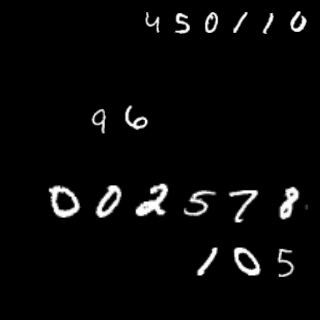 450110
96
002578
105